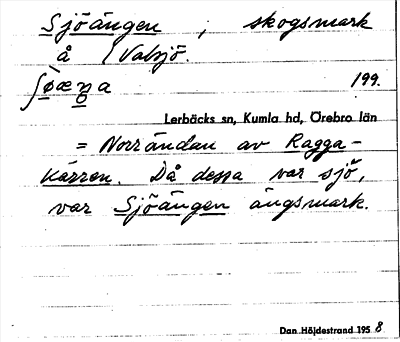 Sjöängen, skogsmark
å Valsjö.
ʃø̀æŋa 199.
Lerbäcks sn, Kumla hd, Örebro län
= Norrändan av Ragga-
kärren. Då dessa var sjö,
var Sjöängen ängsmark.
Dan Höjdestrand 1958